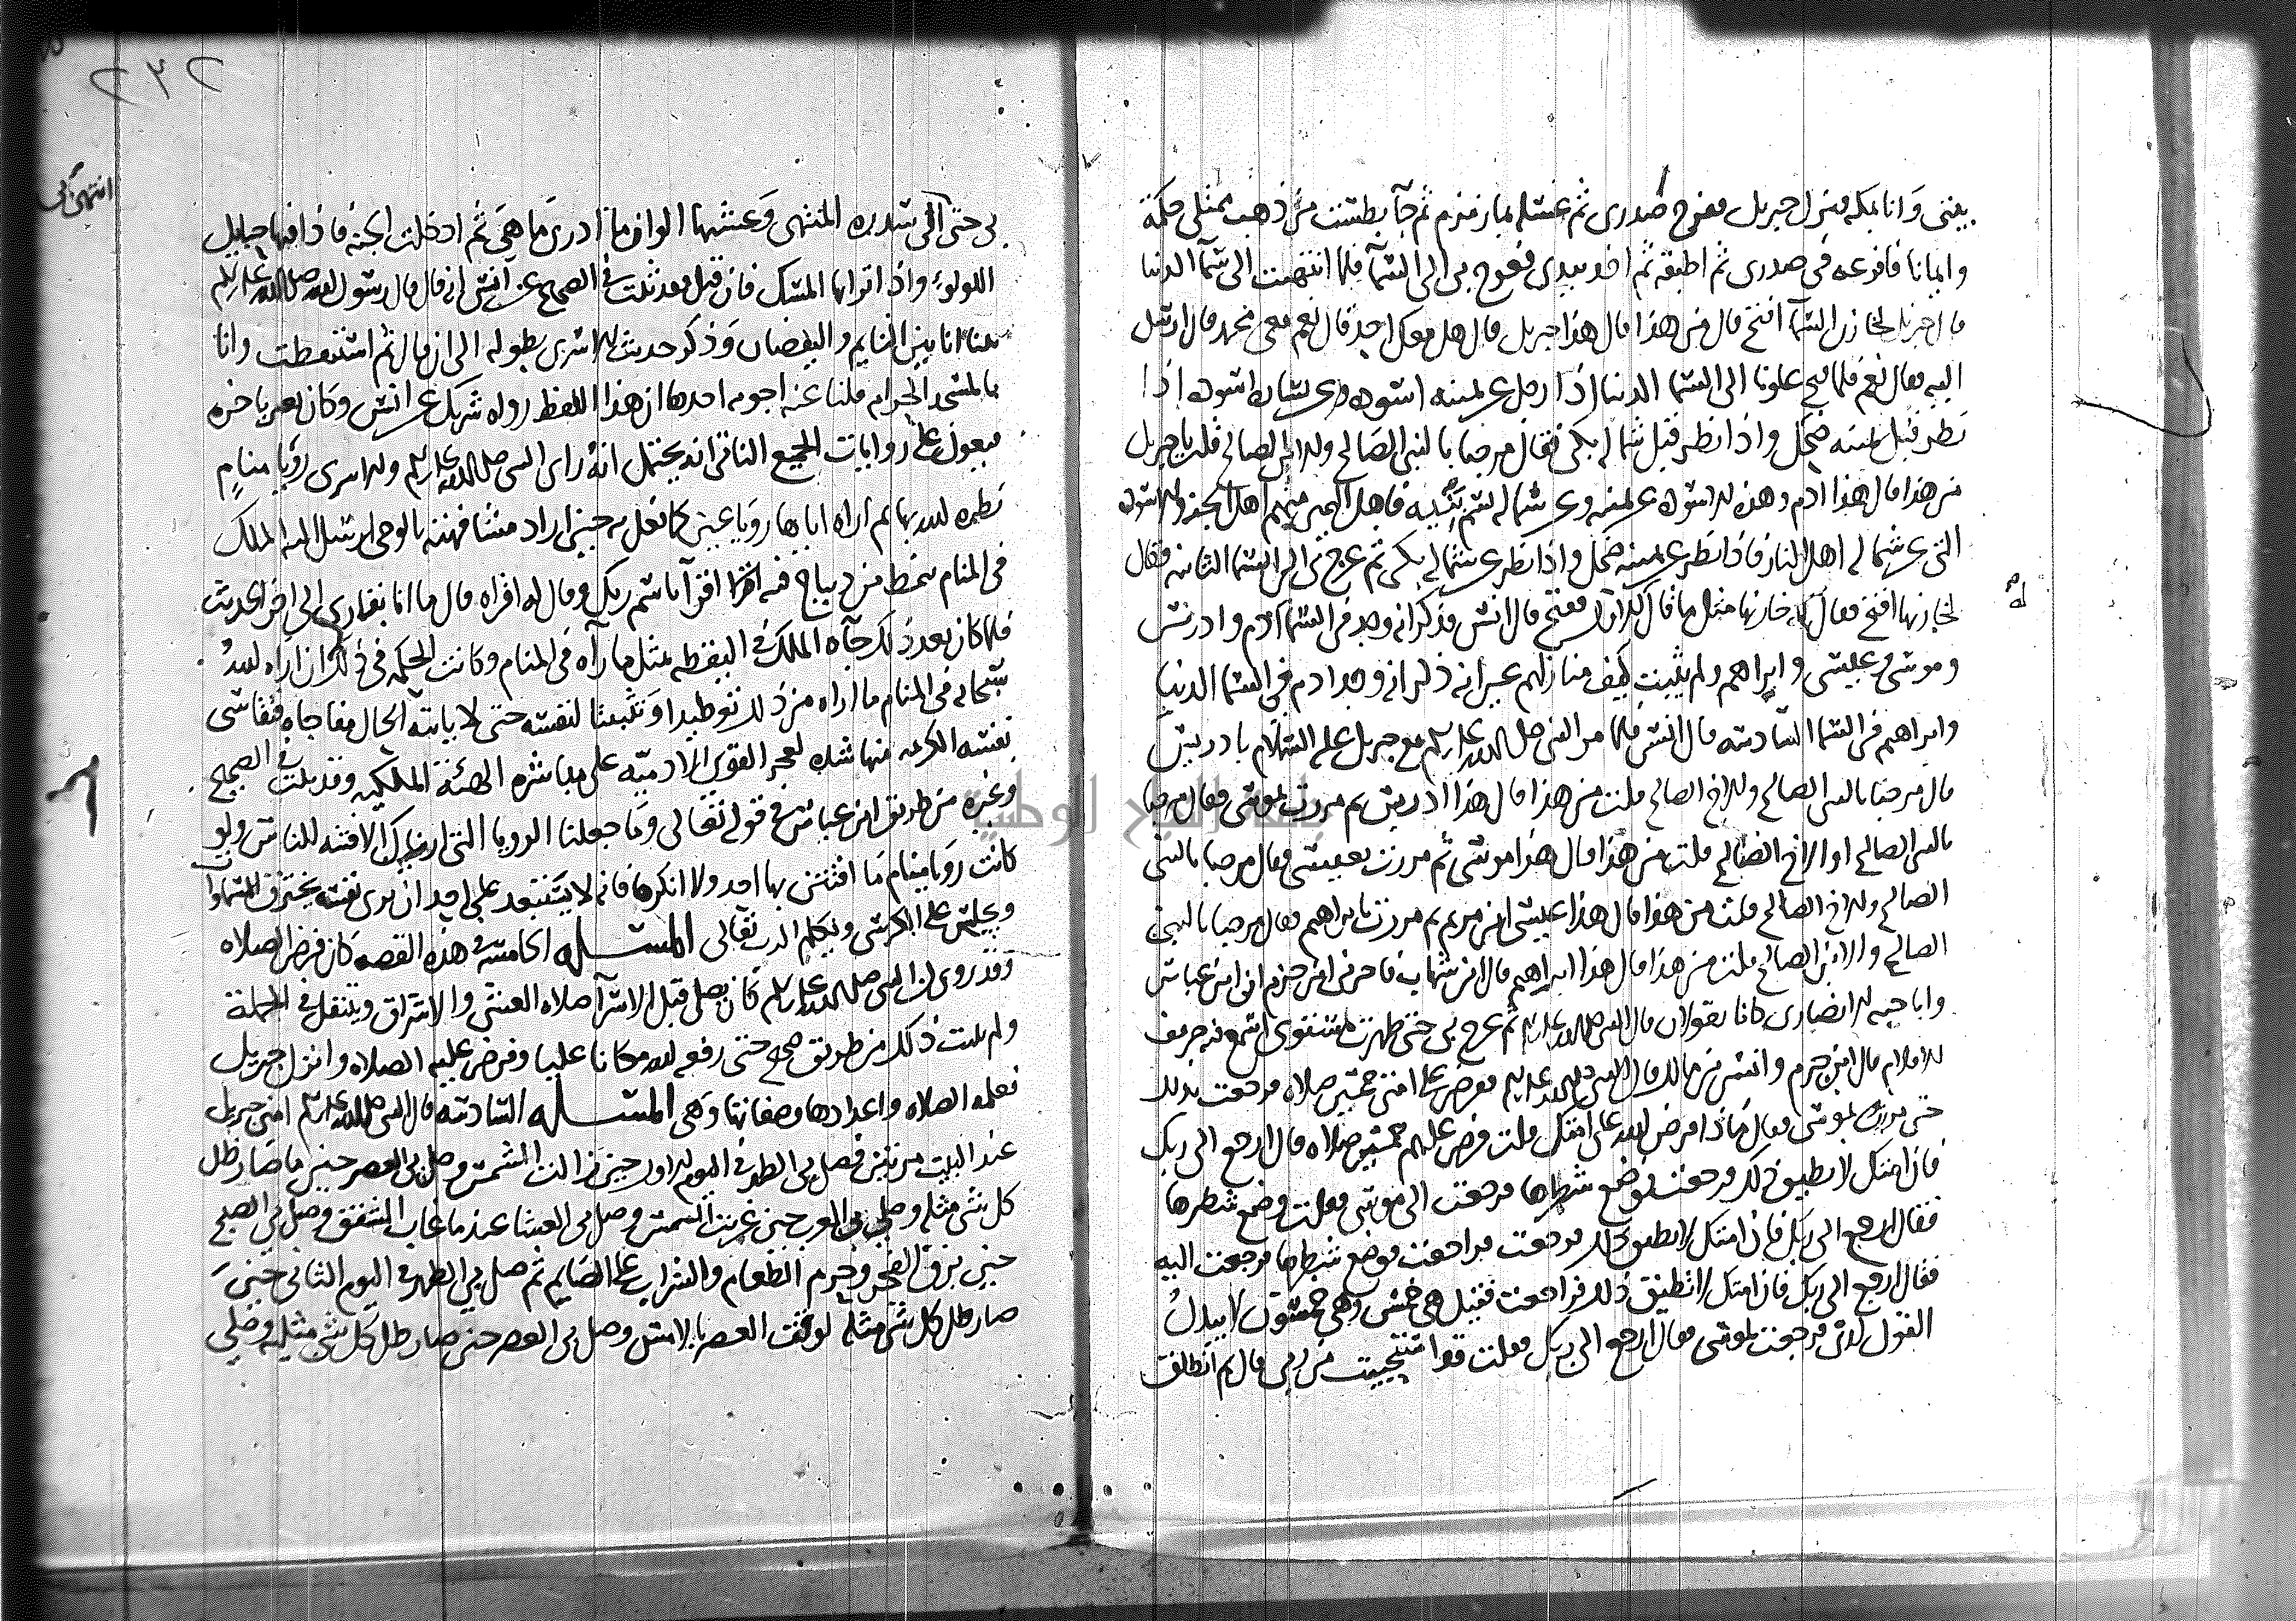 بيتى وانا بمكه فنزل جبريل ففرج صدرى ثم غسله بما زمزم ثم جآ بطست من ذهب ممتلى حكمة
وايمانا فافرغه فى صدرى ثم اطبقه ثم اخد بيدى فعرج بى الى السمآ فلما انتهيت الى سمآ الدنيا
قال جبريل لخازن السمآ افتح قال من هذا قال هذا جبريل قال هل معك احد قال نعم معى محمد قال ارسل
اليه فقال نعم فلما فتح علونا الى السما الدنيا اذا رجل عن يمينه اسوده وعن يساره اسوده اذا
نظر قبل يمينه ضحك واذا نظر قبل شماله بكى فقال مرحبا بالنبى الصالح والابن الصالح قلت يا جبريل
من هذا قال هذا ادم وهذه الاسوده عن يمينه وعن شماله نسم بنيه فاهل اليمين منهم اهل الجنه والاسوده
التى عن شماله اهل النار فاذا نظر عن يمينه ضحك واذا نظر عن شماله بكى ثم عرج بى الى السما الثانيه فقال
لخازنها افتح فقال له خازنها مثل ما قال الاول ففتح قال انس فذكر انه وجد فى السما ادم وادريس
وموسى وعيسى وابراهيم ولم يثبت كيف منازلهم غير انه ذكر انه وجد ادم فى السما الدنيا
وابراهيم فى السما السادسه قال انس فلما مر النبى صلى الله عليه وسلم مع جبريل عليه السلام بادريس
قال مرحبا بالنبى الصالح والاخ الصالح قلت من هذا قال هذا ادريس ثم مررت بموسى فقال مرحبا
بالنبى الصالح والاخ الصالح قلت من هذا قال هذا موسى ثم مررت بعيسى فقال مرحبا بالنبى
الصالح والاخ الصالح قلت من هذا قال هذا عيسى ابن مريم ثم مررت بابراهيم فقال مرحبا بالنبى
الصالح والابن الصالح قلت من هذا قال هذا ابراهيم قال ابن شهاب فاخبرنى ابن حزم ان ابن عباس
وابا حبه الانصارى كانا يقولان قال النبى صلى الله عليه وسلم ثم عرج بى حتى ظهرت لمستوى اسمع فيه صريف
الاقلام قال ابن حزم وانس بن مالك قال النبى صلى الله عليه وسلم ففرض على امتى خمسين صلاه فرجعت بذلك
حتى مررت بموسى فقال ماذا فرض الله على امتك قلت فرض عليهم خمسين صلاه قال ارجع الى ربك
فان امتك لا تطيق ذلك فرجعت فوضع شطرها فرجعت الى موسى فقلت وضع شطرها
فقال ارجع الى ربك فان امتك لا تطيق ذلك فرجعت فراجعت فوضع شطرها فرجعت اليه
فقال ارجع الى ربك فان امتك لا تطيق ذلك فراجعت فقيل هى خمس وهى خمسون لا يبدل
القول لدى فرجعت لموسى فقال ارجع الى ربك فقلت قد استحييت من ربى قال ثم انطلق
٢٣٢
انتهى بى
بى حتى اتى سدره المنتهى وغشيها الوان ما ادرى ما هى ثم ادخلت الجنه فاذا فيها حبايل
اللولوء واذا ترابها المسك فان قيل فقد ثبت فى الصحيح عن انس انه قال قال رسول الله صلى الله عليه وسلم
بينا انا بين النايم واليقضان وذكر حديث الاسرى بطوله الى ان قال ثم استيقظت وانا
بالمسجد الحرام قلنا عنه اجوبه احدها ان هذا اللفظ رواه شريك عن انس وكان تغير باخره
فيعول على روايات الجميع الثانى انه يحتمل انه راى النبى صلى الله عليه وسلم الاسرى رؤيا منام
ثم اراه اياها رويا عين كما فعل به حين اراد مشافهته بالوحى ارسل اليه الملك
فى المنام بنمط من ديباج فيه اقرا باسم ربك وقال له اقراه قال ما انا بقارى الى اخر الحديث
فلما كان بعد ذلك جآه الملك فى اليقظه بمثل ما رآه فى المنام وكانت الحكمه فى ذلك ان اراه الله
سبحانه فى المنام ما اراه من ذلك توطيدا وتثبيتا لنفسه حتى لا ياتيه الحال مفاجاه فتقاسى
نفسه الكريمه منها شده لعجز القوى الادميه على مباشره الهيئة الملكيه وقد ثبت فى الصحيح
وغيره من طريق ابن عباس فى قوله تعالى وما جعلنا الرويا التى اريناك الا فتنه للناس ولو
كانت رويا منام ما افتتن بها احد ولا انكرها فانه لا يستبعد على احد ان يرى نفسه يخترق السموات
ويجلس على الكرسى ويكلم الرب تعالى المسئله الخامسه فى هذه القصه كان فرض الصلاه
وقد روى ان النبى صلى الله عليه وسلم كان يصلى قبل الاسرآ صلاه العشى والاشراق ويتنفل فى الجملة
ولم يثبت ذلك من طريق صحيح حتى رفعه الله مكانا عليا وفرض عليه الصلاه وانزل جبريل
فعلمه الصلاه واعدادها وصفاتها وهى المسئله السادسه قال النبى صلى الله عليه وسلم امنى جبريل
عند البيت مرتين فصلى بى الظهر فى اليوم الاول حين زالت الشمس وصلى بى العصر حين ما صار ظل
كل شى مثله وصلى بى المغرب حين غربت الشمس وصلى بى العشا عند ما غاب الشفق وصلى بى الصبح
حين بزق الفجر وحرم الطعام والشراب على الصايم ثم صلى بى الظهر فى اليوم الثانى حين
صار ظل كل شى مثله لوقت العصر بالامس وصلى بى العصر حين صار ظل كل شى مثليه وصلى